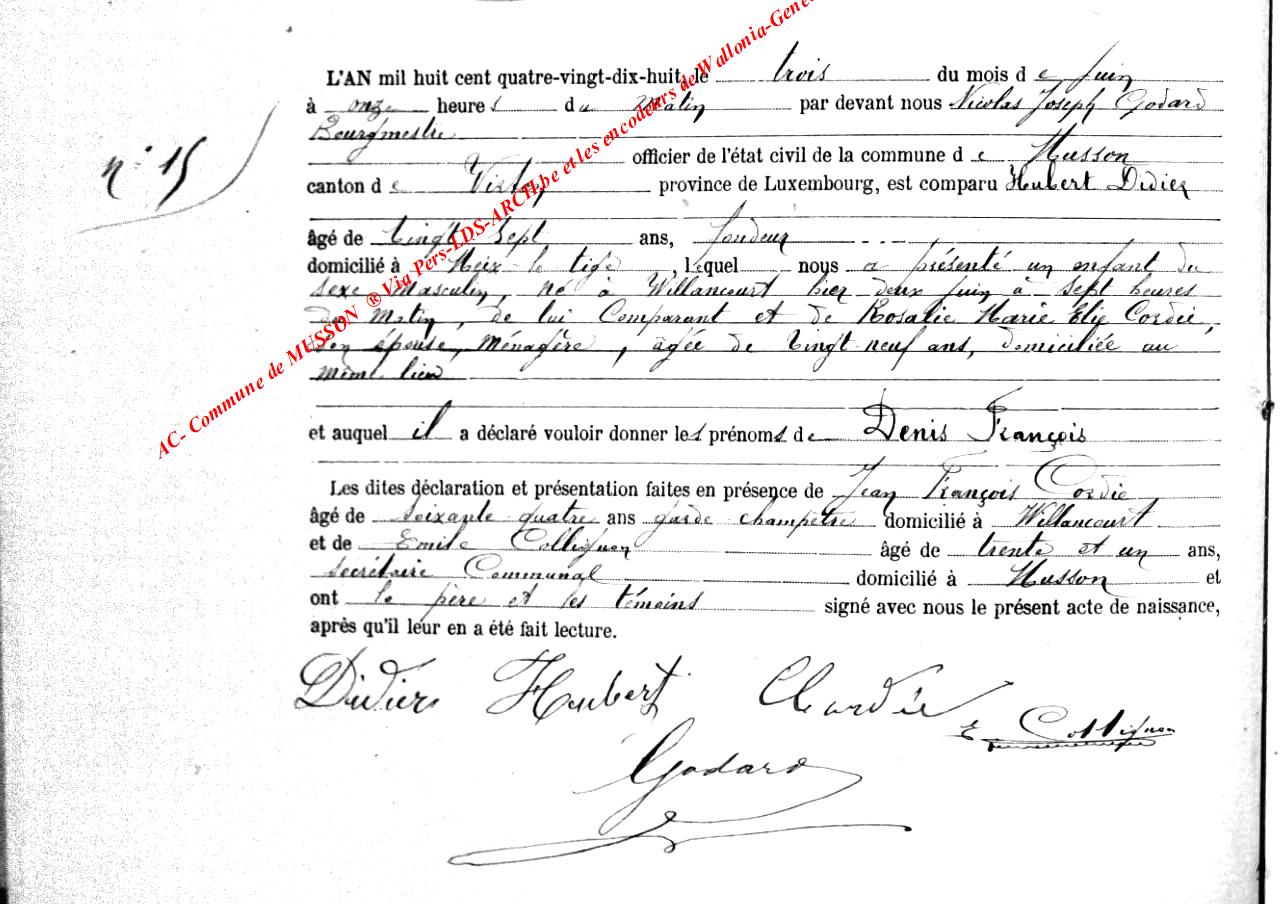 AC- Commune de MUSSON ® Via Pers-LDS-ARCH.be et les encodeurs de Wallonia-Gene
L'AN mil huit cent quatre-vingt-dix-huit, le trois du mois de Juin
à onze heures du Matin par devant nous Nicolas Joseph Godard
Bourgmestre
n° 15
officier de l'état civil de la commune de Musson
canton de Virton province de Luxembourg, est comparu Hubert Didier
âgé de Vingt Sept ans, fondeur
domicilié à Meix-le-tige, lequel nous a présenté un enfant du
sexe Masculin, né à Willancourt hier deux juin à sept heures
du Matin, de lui Comparant et de Rosalie Marie Elie Cordié,
son épouse, Ménagère, agée de Vingt-neuf ans, domiciliée au
même lieu
et auquel il a déclaré vouloir donner les prénoms de Denis François
Les dites déclaration et présentation faites en présence de Jean François Cordié,
âgé de soixante quatre ans garde champêtre domicilié à Willancourt
et de Emile Collignon âgé de trente et un ans,
secrétaire Communal domicilié à Musson et
ont le père et les témoins signé avec nous le présent acte de naissance,
après qu'il leur en a été fait lecture.
Didier Hubert Cordié
E. Collignon
Godard